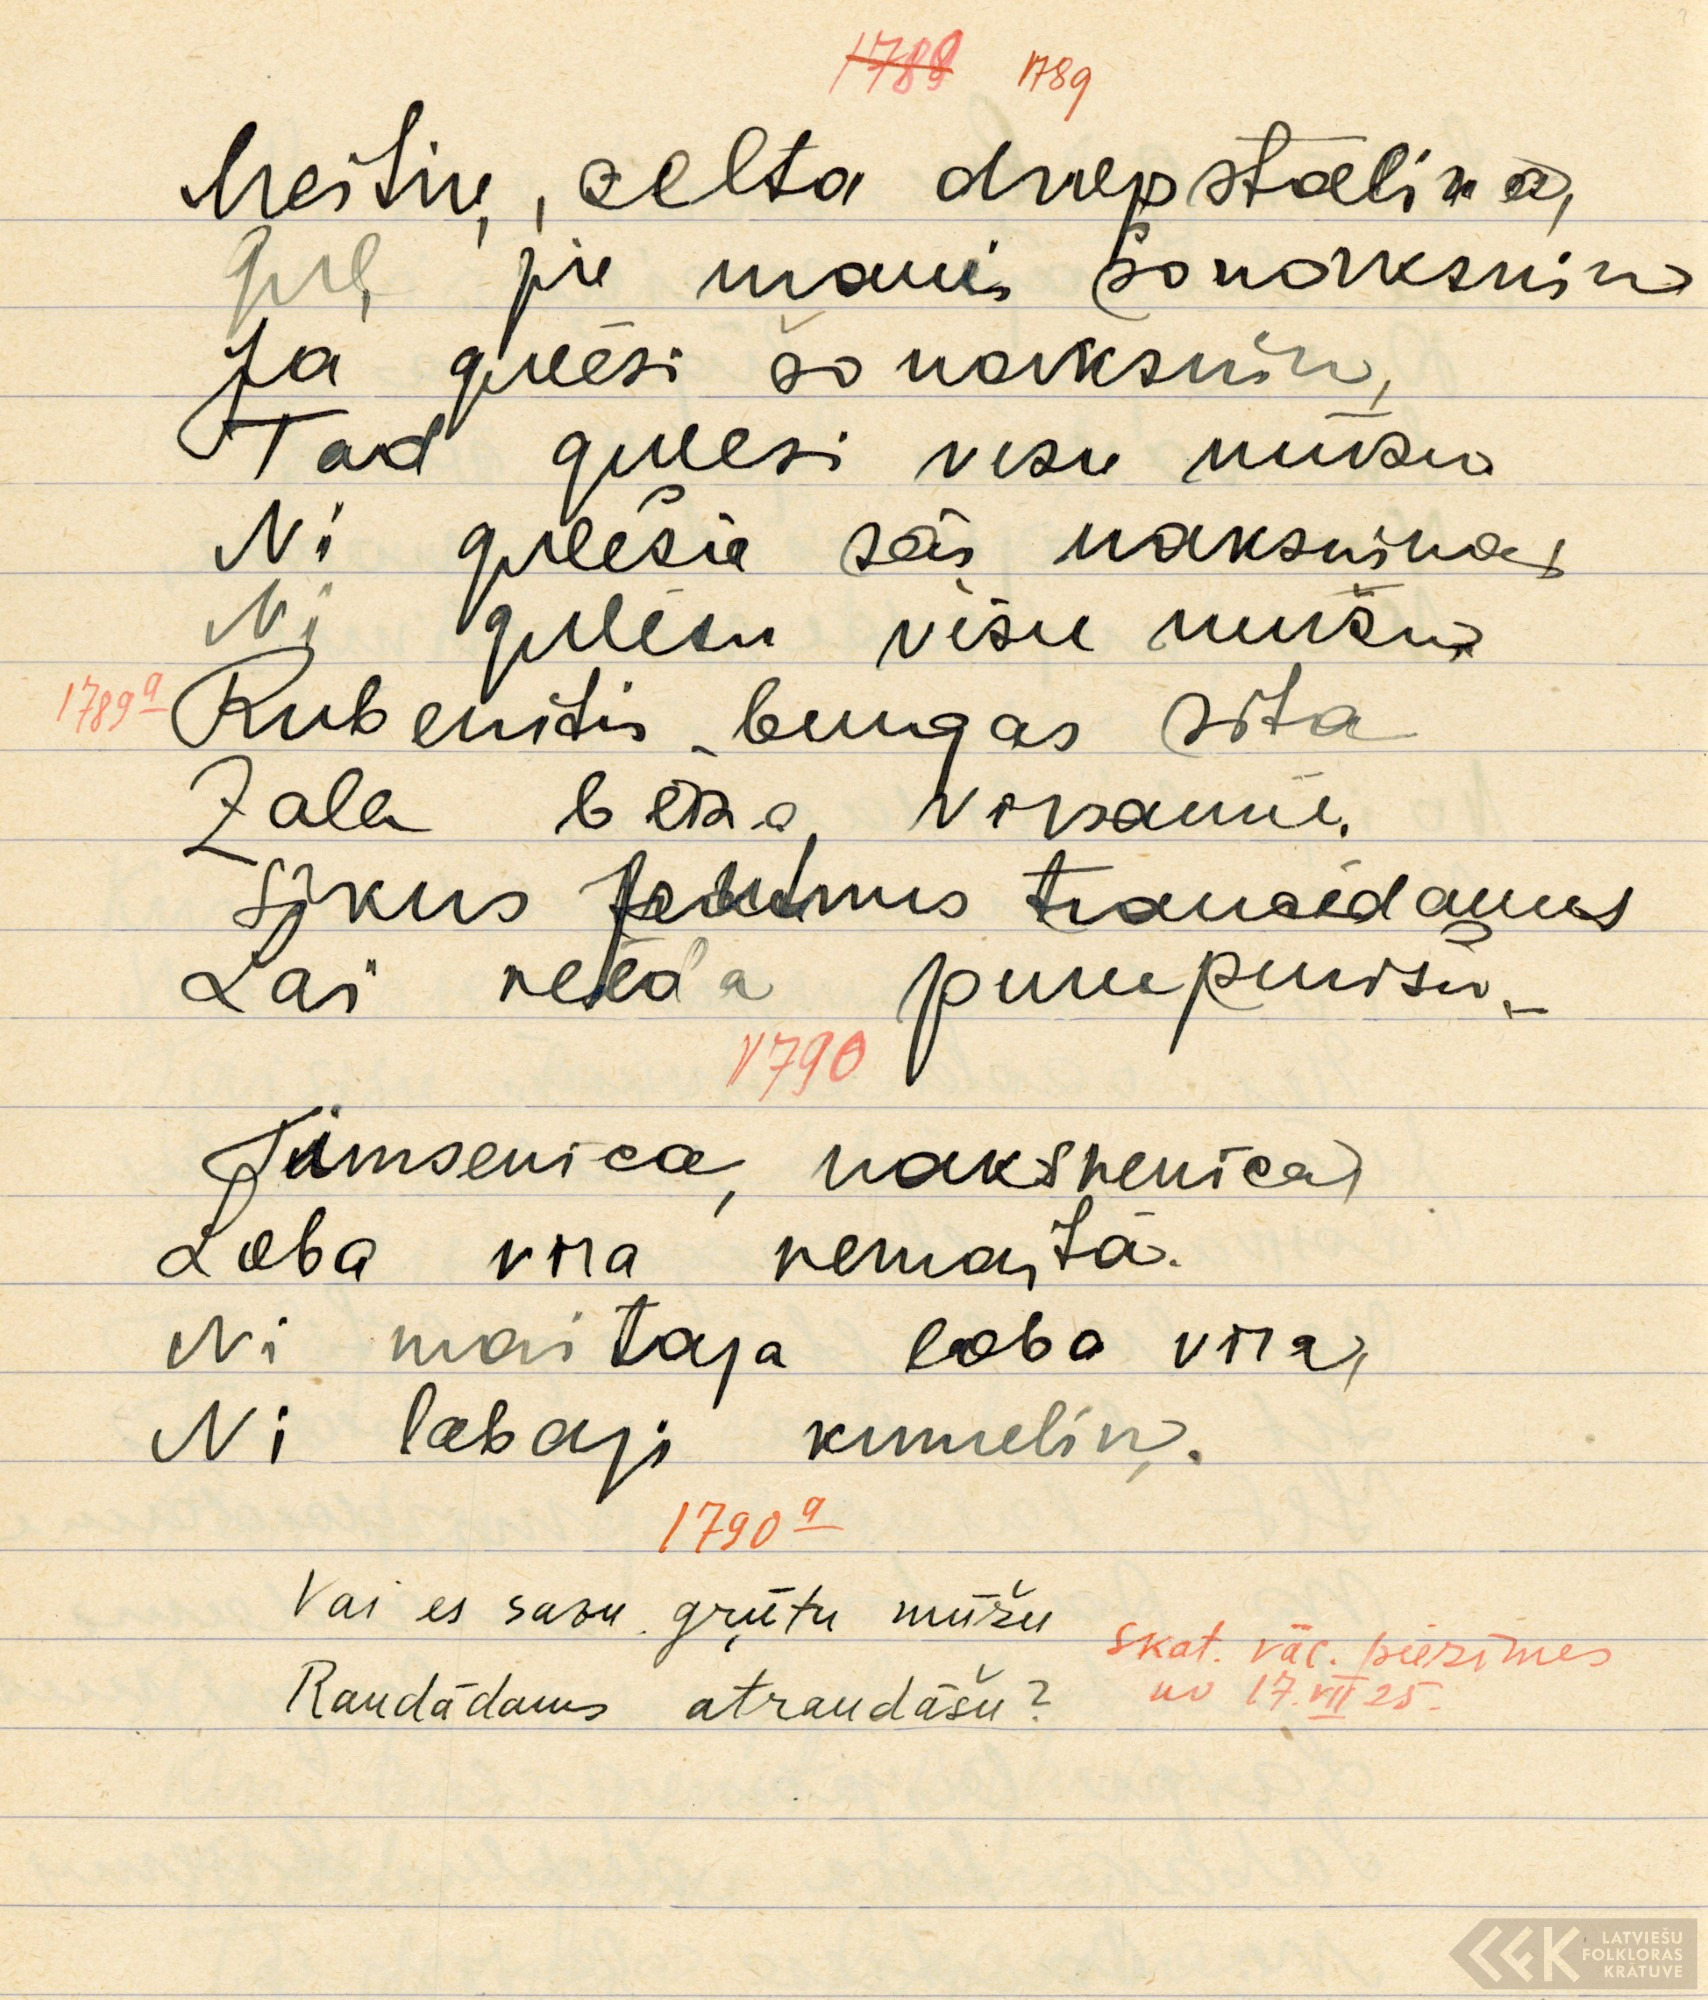 1788 1789
Meitiņ, zelta drupstaliņa,
Guļ pie manis šonaksniņ
Ja gulēsi šo naksniņ,
Tad gulesi visu mūžu
Ni gulēšu šās naksniņas
Ni gulēšu višu mūžu
1789a Rubenītis bungas sita
Zaļa bērza virsaunē.
Sīkus putnus trancēdamus
Lai neēda pumpurišu.
1790
Tumsenica, naksnenica,
Laba vīra nemaitā.
Ni maitaja laba vīra,
Ni labaji kumeliņ.
1790a
Vai es savu grūtu mūžu
Raudādams atraudāšu?
skat. vāc. piezīmes
no 17. VII 25.
LATVIEŠU
FOLKLORAS
KRĀTUVE